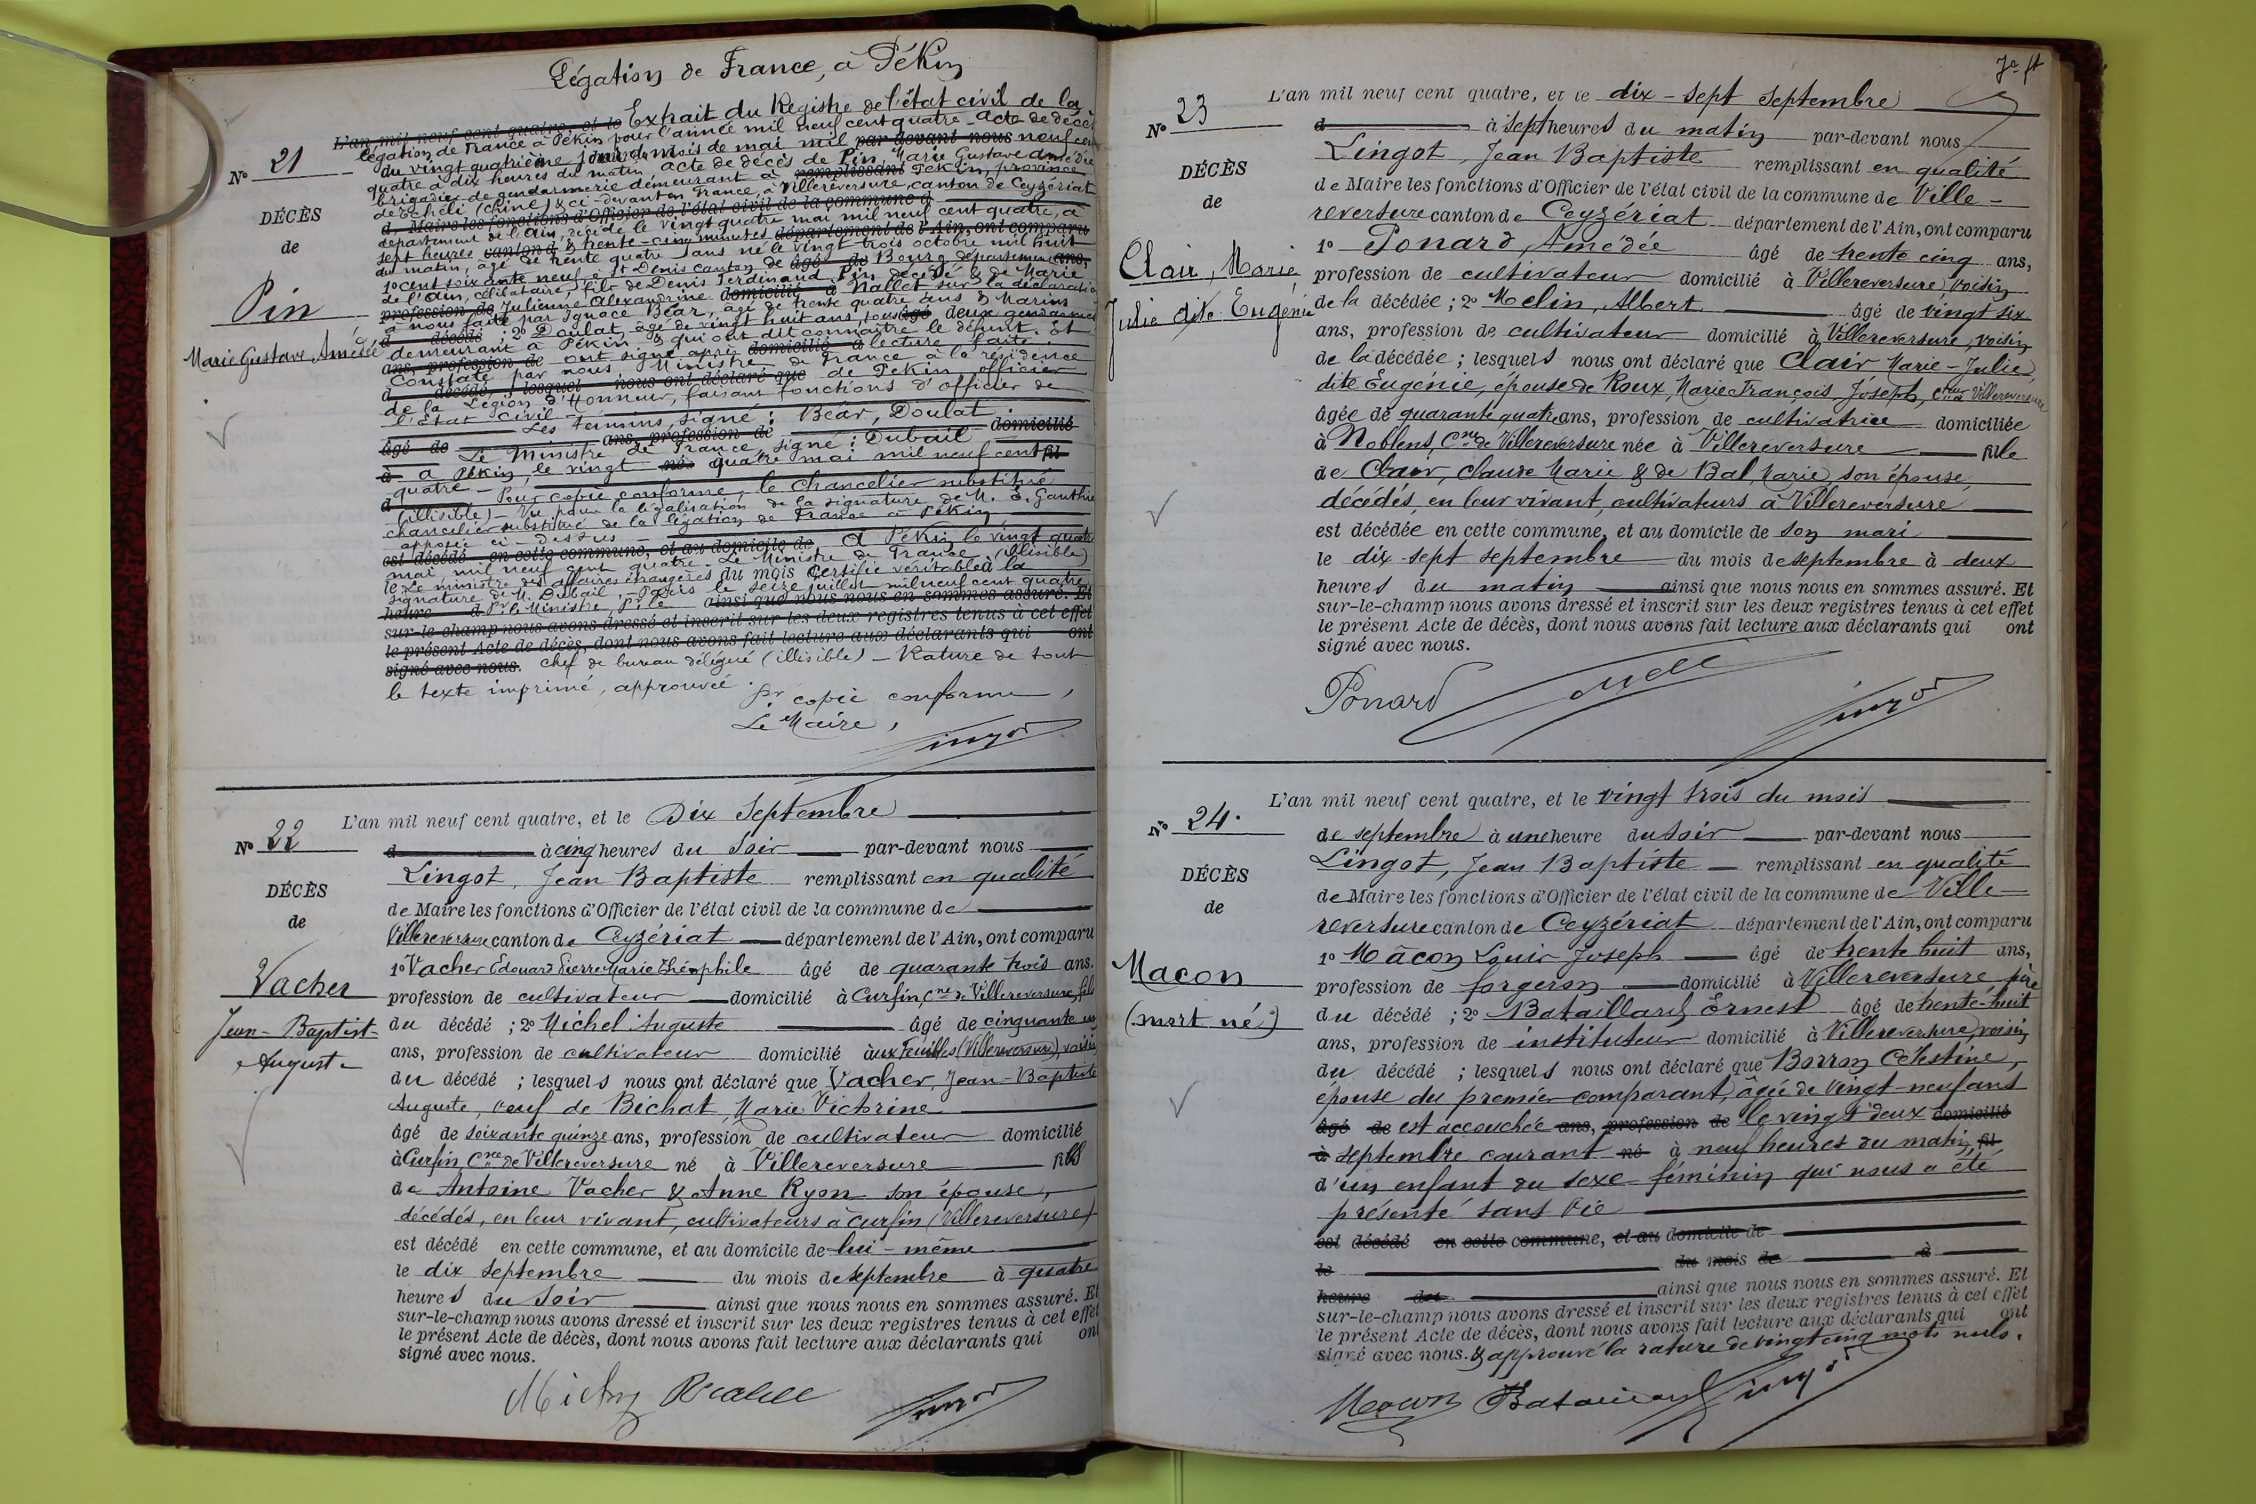 Légation de France, à Pékin
L'an mil neuf cent quatre, et le Extrait du Registre de l'état civil de la
légation de France à Pékin pour l'année mil neuf cent quatre - Acte de décès
N° 21
du vingt quatrième jour du mois de mai mil par-devant nous neuf cent
quatre à dix heures du matin acte de décès de Pin, Marie Gustave Amédée
brigadier de gendarmerie demeurant à remplissant Pékin, province
de Tchéli (Chine) & ci-devant en France, à Villereversure, canton de Ceyzériat
DÉCÈS
d Maire les fonctions d'Officier de l'état civil de la commune d
département de l'Ain, décédé le vingt quatre mai mil neuf cent quatre, à
de
sept heures canton d & trente-cinq minutes département de l'Ain, ont comparu
du matin, âgé de trente quatre ans né le vingt trois octobre mil huit
1° cent soixante neuf à St Denis canton de âgé de Bourg département ans,
de l'Ain, célibataire, fils de Denis Ferdinand Pin décédé & de Marie
Pin
profession de Julienne Alexandrine domicilié à Nallet sur la déclaration
à nous faite par Ignace Béar, âgé de trente quatre ans & Marius
d décédé ; 2° Doulat, âgé de vingt huit ans, tous âgé deux gendarmes
Marie Gustave Amédée
demeurant à Pékin & qui ont dit connaître le défunt. Et
ans, profession de ont signé après domicilié à lecture faite.
Constaté par nous Ministre de France à la résidence
d décédé, lesquel nous ont déclaré que de Pékin, officier
de la Légion d'Honneur, faisant fonctions d'officier de
l'état civil - Les témoins, signé : Béar, Doulat.
âgé de ans, profession de domicilié
Le Ministre de France, signé : Dubail
à à Pékin, le vingt né quatre mai mil neuf cent fil
quatre - Pour copie conforme, le chancelier substitué
d (illisible) - Vu pour la légalisation de la signature de M. E. Gauthier
chancelier substitué de la légation de France à Pékin
apposée ci-dessus -
est décédé en cette commune, et au domicile de A Pékin, le vingt quatre
mai mil neuf cent quatre. Le Ministre de France (illisible)
le Le ministre des affaires étrangères du mois certifie véritable à la
signature de M. Dubail - Paris le seize juillet mil neuf cent quatre
heure d Pr le Ministre, Pr le ainsi que nous nous en sommes assuré. Et
sur-le-champ nous avons dressé et inscrit sur les deux registres tenus à cet effet
le présent Acte de décès, dont nous avons fait lecture aux déclarants qui ont
signé avec nous. chef de bureau délégué (illisible) - Rature de tout
le texte imprimé, approuvée.
Pr copie conforme,
Le Maire,
L'an mil neuf cent quatre, et le Dix Septembre
N° 22
d à cinq heures du soir par-devant nous
Lingot, Jean Baptiste remplissant en qualité
DÉCÈS
de Maire les fonctions d'Officier de l'état civil de la commune de
de
Villereversure canton de Ceyzériat département de l'Ain, ont comparu
1° Vacher Edouard Pierre Marie Théophile âgé de quarante trois ans.
Vacher
profession de cultivateur domicilié à Curfin, Cne de Villereversure, fils
Jean-Baptiste
du décédé ; 2° Michel Auguste âgé de cinquante un
Auguste
ans, profession de cultivateur domicilié aux Feuilles (Villereversure), voisin
du décédé ; lesquels nous ont déclaré que Vacher, Jean-Baptiste
Auguste, veuf de Bichat, Marie Victorine
âgé de soixante quinze ans, profession de cultivateur domicilié
à Curfin Cne de Villereversure né à Villereversure fils
de Antoine Vacher & Anne Ryon son épouse,
décédés, en leur vivant, cultivateurs à Curfin (Villereversure)
est décédé en cette commune, et au domicile de lui-même
le dix septembre du mois de septembre à quatre
heures du soir ainsi que nous nous en sommes assuré. Et
sur-le-champ nous avons dressé et inscrit sur les deux registres tenus à cet effet
le présent Acte de décès, dont nous avons fait lecture aux déclarants qui ont
signé avec nous.
L'an mil neuf cent quatre, et le dix-sept septembre
N° 23
d à sept heures du matin par-devant nous
Lingot, Jean Baptiste remplissant en qualité
DÉCÈS
de Maire les fonctions d'Officier de l'état civil de la commune de Ville-
de
reversure canton de Ceyzériat département de l'Ain, ont comparu
1° Ponard, Amédée âgé de trente cinq ans,
Clair, Marie
profession de cultivateur domicilié à Villereversure, voisin
Julie dite Eugénie
de la décédée ; 2° Melin, Albert âgé de vingt six
ans, profession de cultivateur domicilié à Villereversure, voisin
de la décédée ; lesquels nous ont déclaré que Clair Marie-Julie
dite Eugénie, épouse de Roux, Marie François Joseph, cteur Villereversure
âgée de quarante quatre ans, profession de cultivatrice domiciliée
à Noblens, Cne de Villereversure née à Villereversure fille
de Clair, Claude Marie & de Bal, Marie, son épouse,
décédés, en leur vivant, cultivateurs à Villereversure
est décédée en cette commune, et au domicile de son mari
le dix-sept septembre du mois de septembre à deux
heures du matin ainsi que nous nous en sommes assuré. Et
sur-le-champ nous avons dressé et inscrit sur les deux registres tenus à cet effet
le présent Acte de décès, dont nous avons fait lecture aux déclarants qui ont
signé avec nous.
Ponard
L'an mil neuf cent quatre, et le vingt trois du mois
N° 24.
de septembre à une heure du soir par-devant nous
Lingot, Jean Baptiste remplissant en qualité
DÉCÈS
de Maire les fonctions d'Officier de l'état civil de la commune de Ville-
de
reversure canton de Ceyzériat département de l'Ain, ont comparu
1° Mâcon Louis Joseph âgé de trente huit ans,
Macon
profession de forgeron domicilié à Villereversure père
(mort né)
du décédé ; 2° Bataillard Ernest âgé de trente-huit
ans, profession de instituteur domicilié à Villereversure, voisin
du décédé ; lesquels nous ont déclaré que Borron Célestine,
épouse du premier comparant, âgée de vingt-neuf ans
âgé de est accouchée ans, profession de le vingt deux domicilié
à septembre courant né à neuf heures du matin, fil
d'un enfant du sexe féminin qui nous a été
présenté sans vie
est décédé en cette commune, et au domicile de
le du mois de à
heure du ainsi que nous nous en sommes assuré. Et
sur-le-champ nous avons dressé et inscrit sur les deux registres tenus à cet effet
le présent Acte de décès, dont nous avons fait lecture aux déclarants qui ont
signé avec nous. & approuvé la rature de vingt cinq mots nuls.
Macon Bataillard